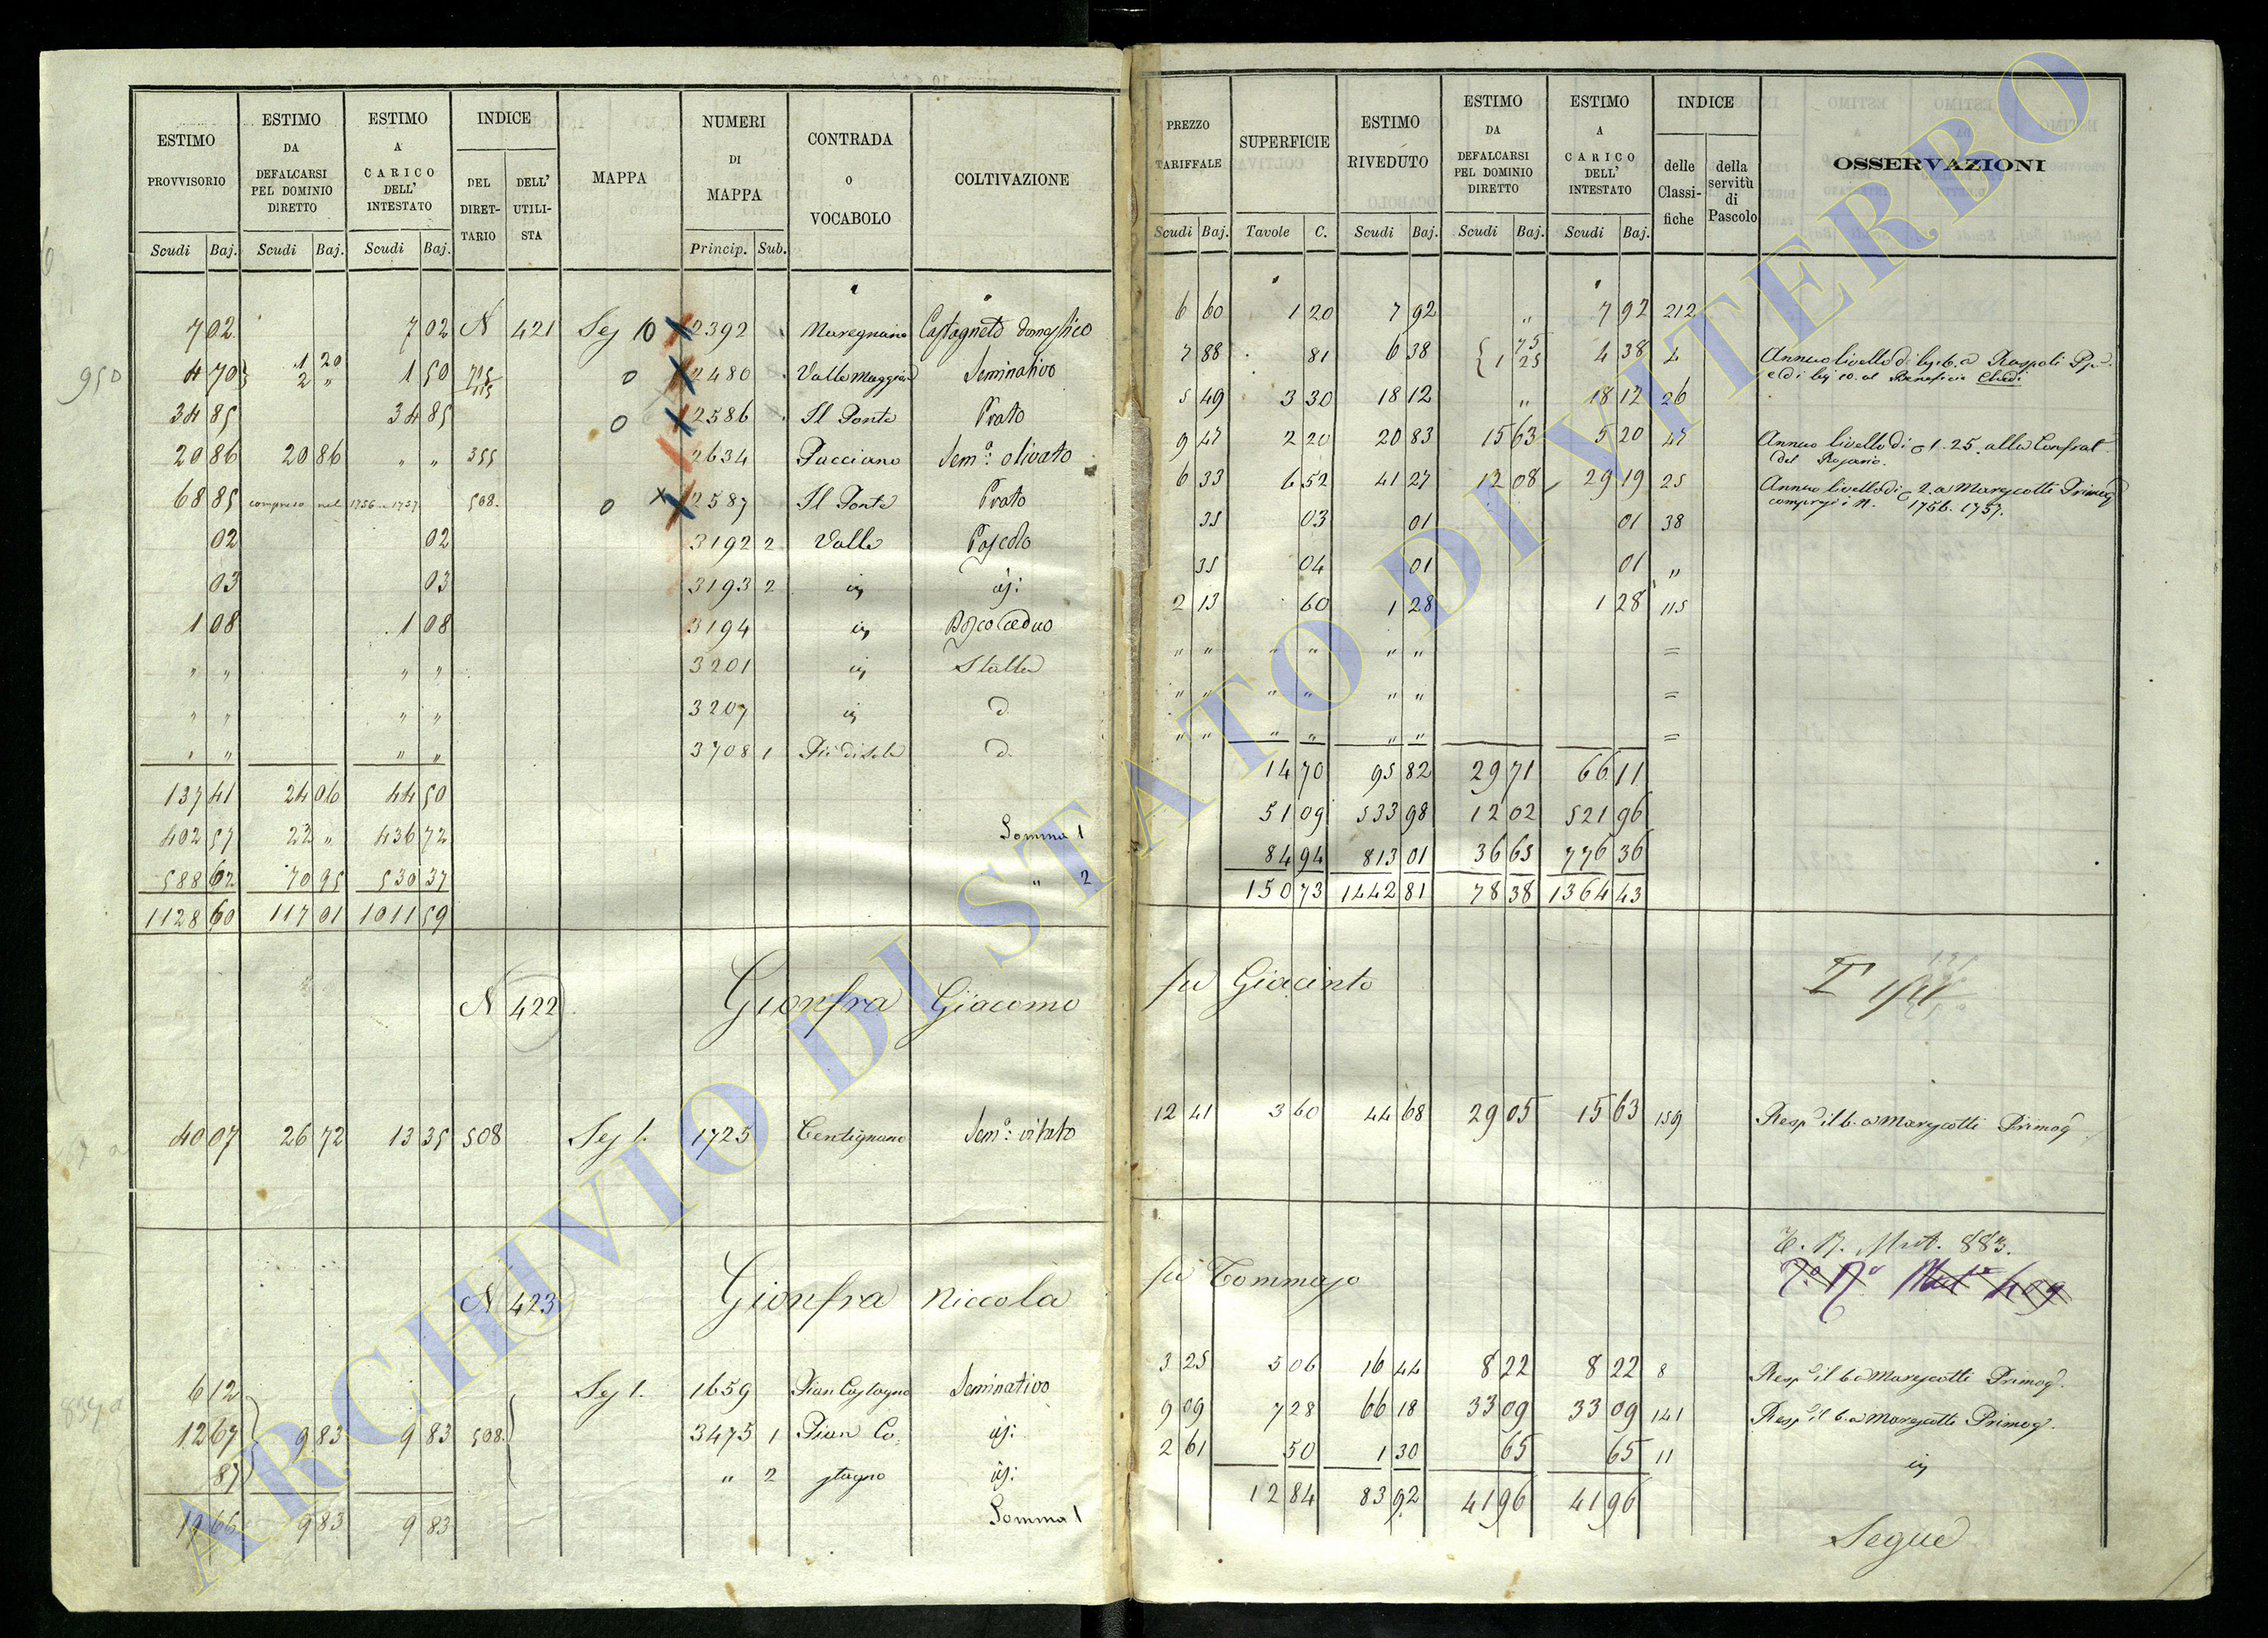 ESTIMO PROVVISORIO | ESTIMO DA DEFALCARSI PEL DOMINIO DIRETTO | ESTIMO A CARICO DELL' INTESTATO | INDICE | MAPPA | NUMERI DI MAPPA | CONTRADA O VOCABOLO | COLTIVAZIONE
DEL DIRETTARIO | DELL' UTILISTA
Scudi | Baj. | Scudi | Baj. | Scudi | Baj. | Princip. | Sub.
7 02 | 7 02 | N | 421 | Sez 10 | 2392 | Maregnano | Castagneto domestico
4 70 | 1 20 | 2 " | 1 50 | 2480 | Valle Maggiore | Seminativo
34 85 | 34 85 | 2586 | Il Ponte | Prato
20 86 | 20 86 | " " | 355 | 2634 | Pacciano | Sem.o olivato
68 85 | compreso nel 1756 e 1757 | 508 | 2587 | Il Ponte | Prato
02 | 02 | 3192 | 2 | Valle | Pascolo
03 | 03 | 3193 | 2
1 08 | 1 08 | 3194 | Bosco Ceduo
" " | " " | 3201 | Stalla
" " | " " | 3207 | d.
" " | " " | 3708 | 1 | d.
137 41 | 24 06 | 44 50
402 57 | 22 " | 436 72 | Somma 1
588 62 | 70 95 | 530 37 | " 2
1128 60 | 117 01 | 1011 59
N 422 | Gionfra Giacomo
40 07 | 26 72 | 13 35 | 508 | Sez 1. | 1725 | Centignano | Sem.o vitato
N 423 | Gionfra Niccola
6 12 | Sez 1. | 1659 | Pian Castagno | Seminativo
12 67 | 9 83 | 9 83 | 508 | 3475 | 1 | Pian Ca-
87 | " | 2 | stagno
19 66 | 9 83 | 9 83 | Somma 1
PREZZO TARIFFALE | SUPERFICIE | ESTIMO RIVEDUTO | ESTIMO DA DEFALCARSI PEL DOMINIO DIRETTO | ESTIMO A CARICO DELL' INTESTATO | INDICE | OSSERVAZIONI
delle Classifiche | della servitù di Pascolo
Scudi | Baj. | Tavole | C. | Scudi | Baj. | Scudi | Baj. | Scudi | Baj.
6 60 | 1 20 | 7 92 | " | 7 92 | 212
7 88 | 81 | 6 38 | 75 | 1 25 | 4 38 | Annuo livello di
5 49 | 3 30 | 18 12 | " | 18 12 | 26
9 47 | 2 20 | 20 83 | 15 63 | 5 20 | 47 | Annuo livello di 1.25 alla Confrat.
del Rosario.
6 33 | 6 52 | 41 27 | 12 08 | 29 19 | 25 | Annuo livello di 2. a Marescotti Primog
compresi i N. 1756. 1757.
35 | 03 | 01 | 01 | 38
35 | 04 | 01 | 01 | "
2 13 | 60 | 1 28 | 1 28 | 115
" " | " " | " " | =
" " | " " | " " | =
" " | " " | " " | =
14 70 | 95 82 | 29 71 | 66 11
51 09 | 533 98 | 12 02 | 521 96
84 94 | 813 01 | 36 65 | 776 36
150 73 | 1442 81 | 78 38 | 1364 43
fu Giacinto
12 41 | 3 60 | 44 68 | 29 05 | 15 63 | 159 | Resp. il 6. a Marescotti Primog
fu Tommaso
T. N. Mut. 883.
3 25 | 5 06 | 16 44 | 8 22 | 8 22 | 8 | Resp. il 6 a Marescotti Primog.
9 09 | 7 28 | 66 18 | 33 09 | 33 09 | 141 | Resp. il 6. a Marescotti Primog.
2 61 | 50 | 1 30 | 65 | 65 | 11
12 84 | 83 92 | 41 96 | 41 96
Segue
ARCHIVIO DI STATO DI VITERBO